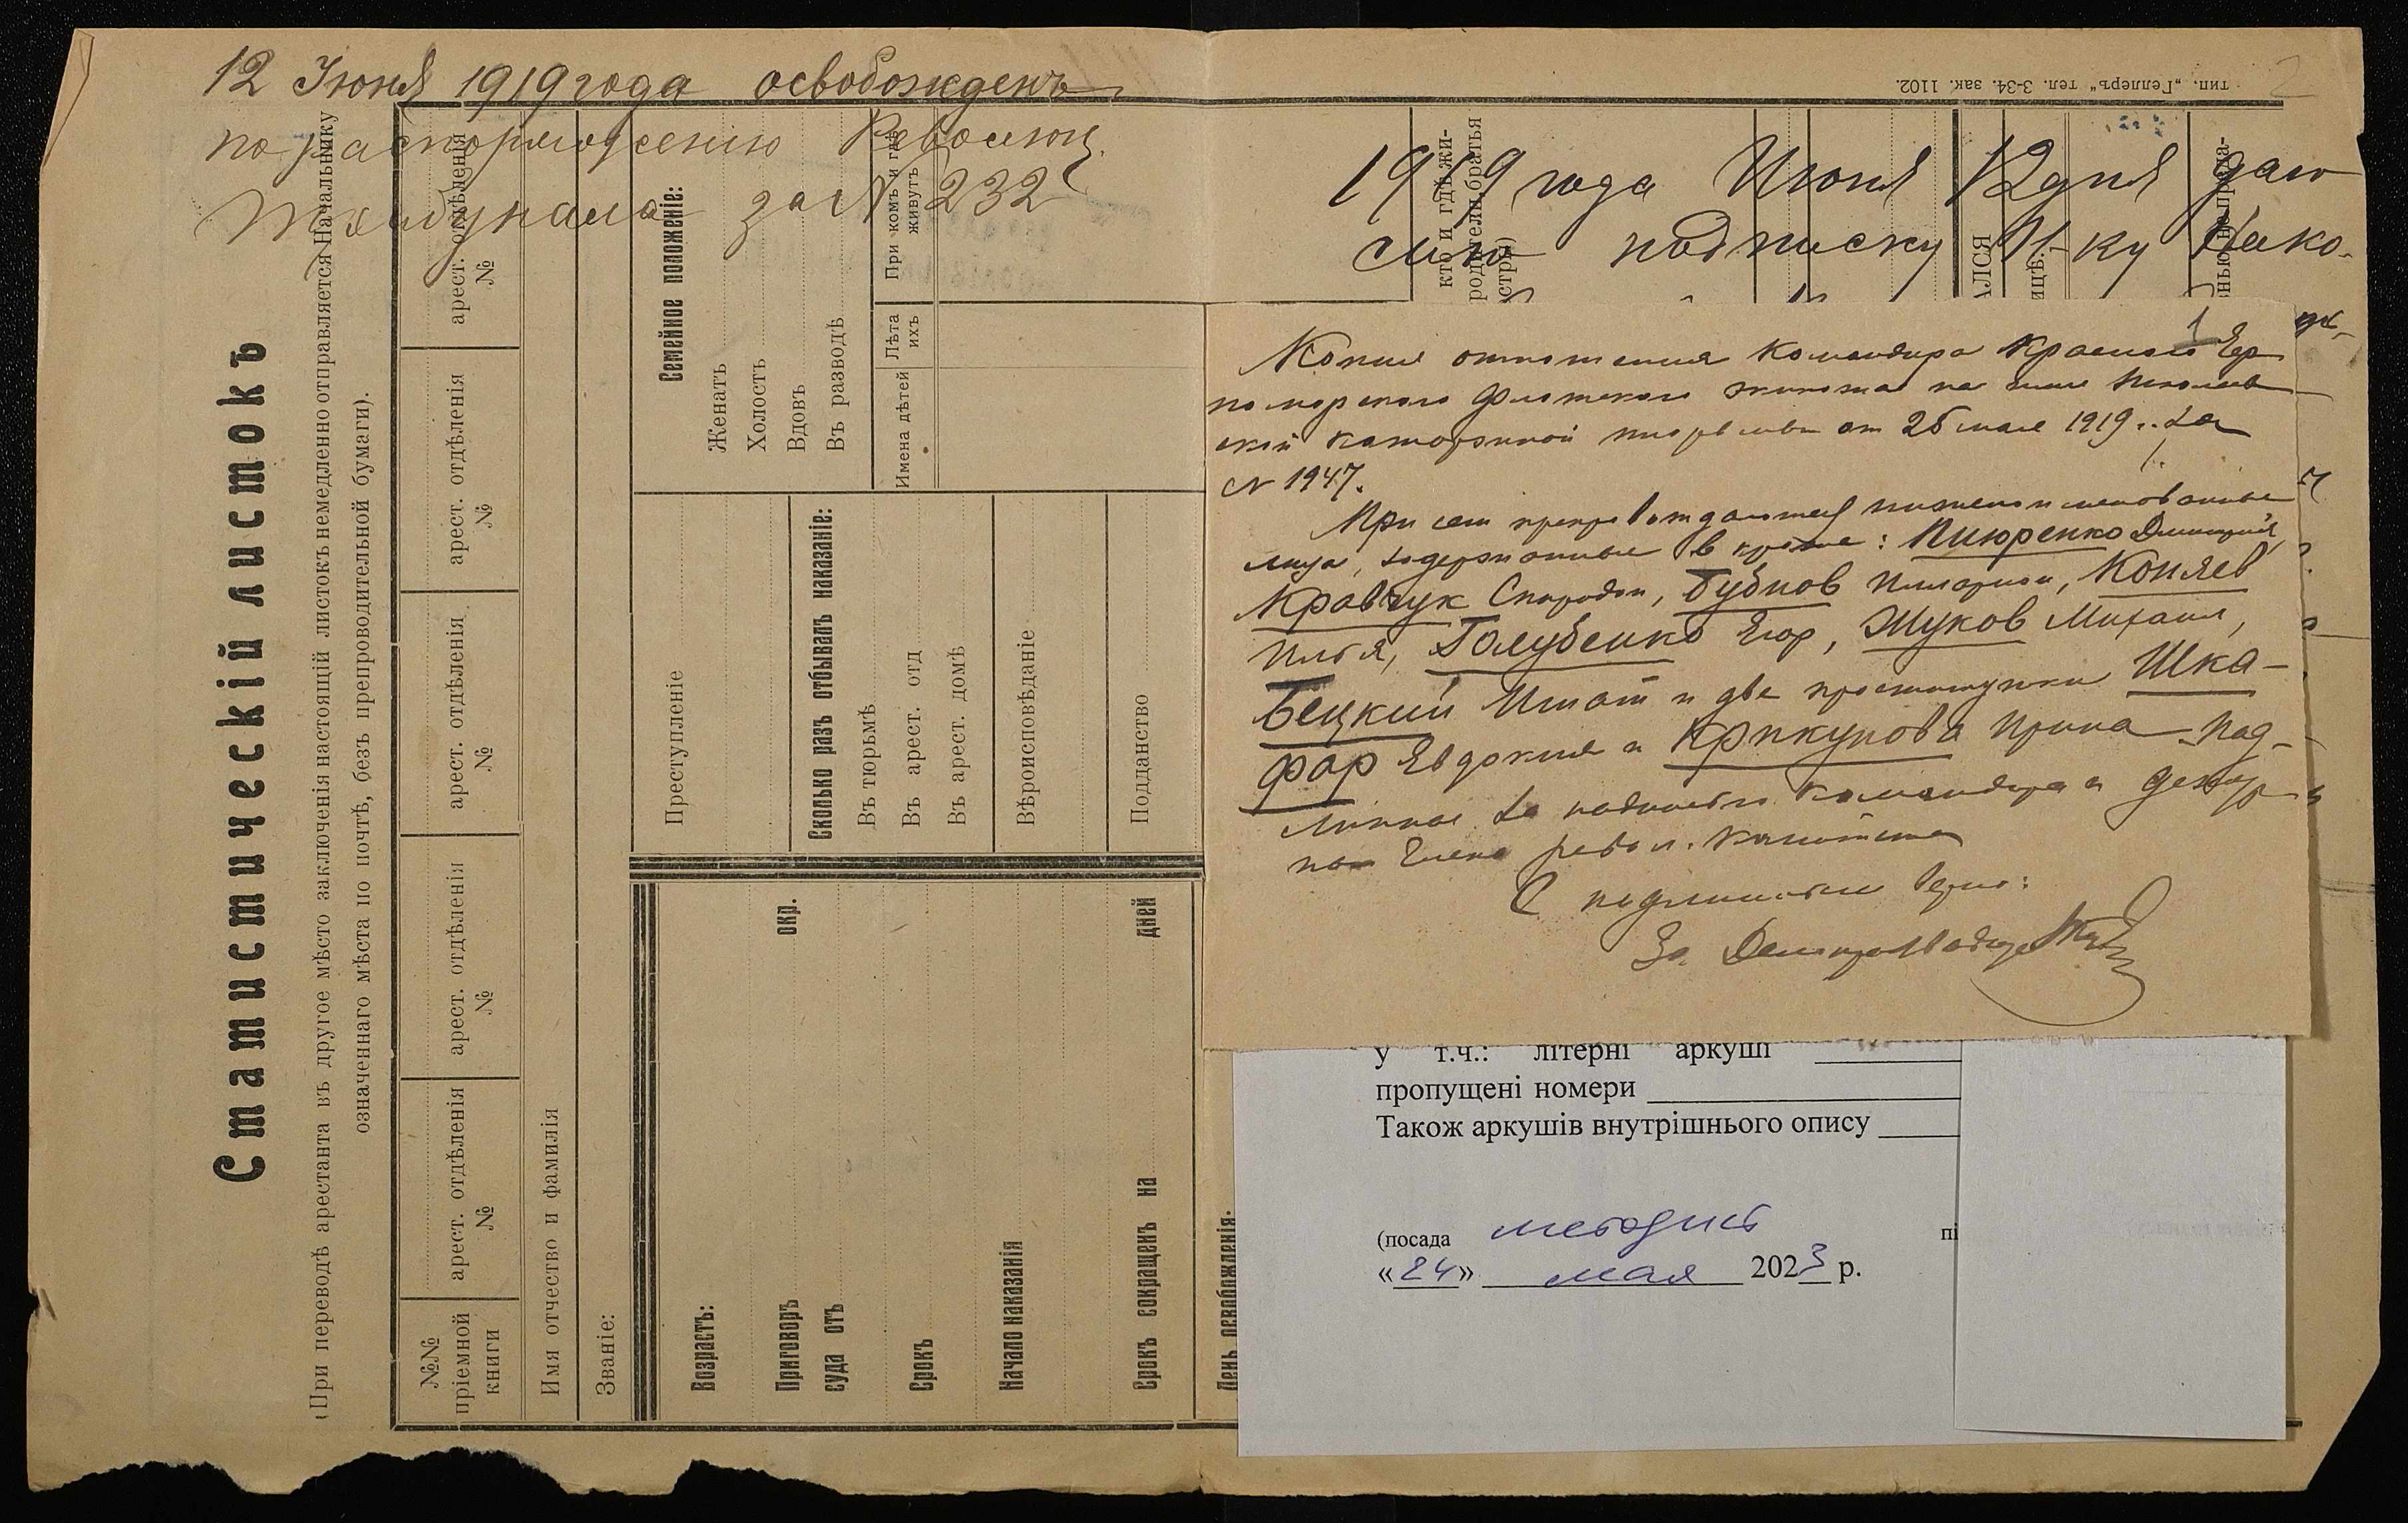 12 Июня 1919 года освобожденъ
по распоряженію Революц.
Трибунала за № 232
Статистическій листокъ
(При переводѣ арестанта въ другое мѣсто заключенія настоящій листокъ немедленно отправляется Начальнику
означеннаго мѣста по почтѣ, безъ препроводительной бумаги).
№№
пріемной
книги
арест. отдѣленія
№
арест. отдѣленія
№
арест. отдѣленія
№
арест. отдѣленія
№
арест. отдѣленія
№
Имя отчество и фамилія
Званіе:
Возрастъ:
Приговоръ окр.
суда отъ
Срокъ
Начало наказанія
Срокъ сокращенъ на дней
День освобожденія:
Преступленіе
Сколько разъ отбывалъ наказаніе:
Въ тюрьмѣ
Въ арест. отд
Въ арест. домѣ
Вѣроисповѣданіе
Подданство
Семейное положеніе:
Женатъ
Холостъ
Вдовъ
Въ разводѣ
Имена дѣтей
Лѣта
ихъ
При комъ и гдѣ
живутъ
тип. „Геллеръ“ тел. 3-34. зак. 1102.
2
кто и гдѣ жи-
родители, братья
стры)
АЛСЯ
ицѣ.
1919 года Июня 12 дня даю
сию подписку Н-ку Нико-
1
Копия отношения Командира Красного Чер
номорского Флотского экипажа на имя Николаев
ской каторжной тюрьмы от 26 мая 1919 г. за
№ 1947.
При сем препровождаются нижепоименованные
лица, содержанные в : Пиюренко Димитрий,
Кравчук Спиридон, Бубнов Илларион, Копяев
Илья, Голубенко Егор, Жуков Михаил,
Бецкий Игнат и две проститутки Шка-
фар Евдокия и Крикунова Ирина Под-
линное за подписью командира и дежур
на члена револ. комитета
С подлинным верно:
За Делопроизводителя
у т.ч.: літерні аркуші
пропущені номери
Також аркушів внутрішнього опису
(посада методист пі
«24» мая 2023 р.